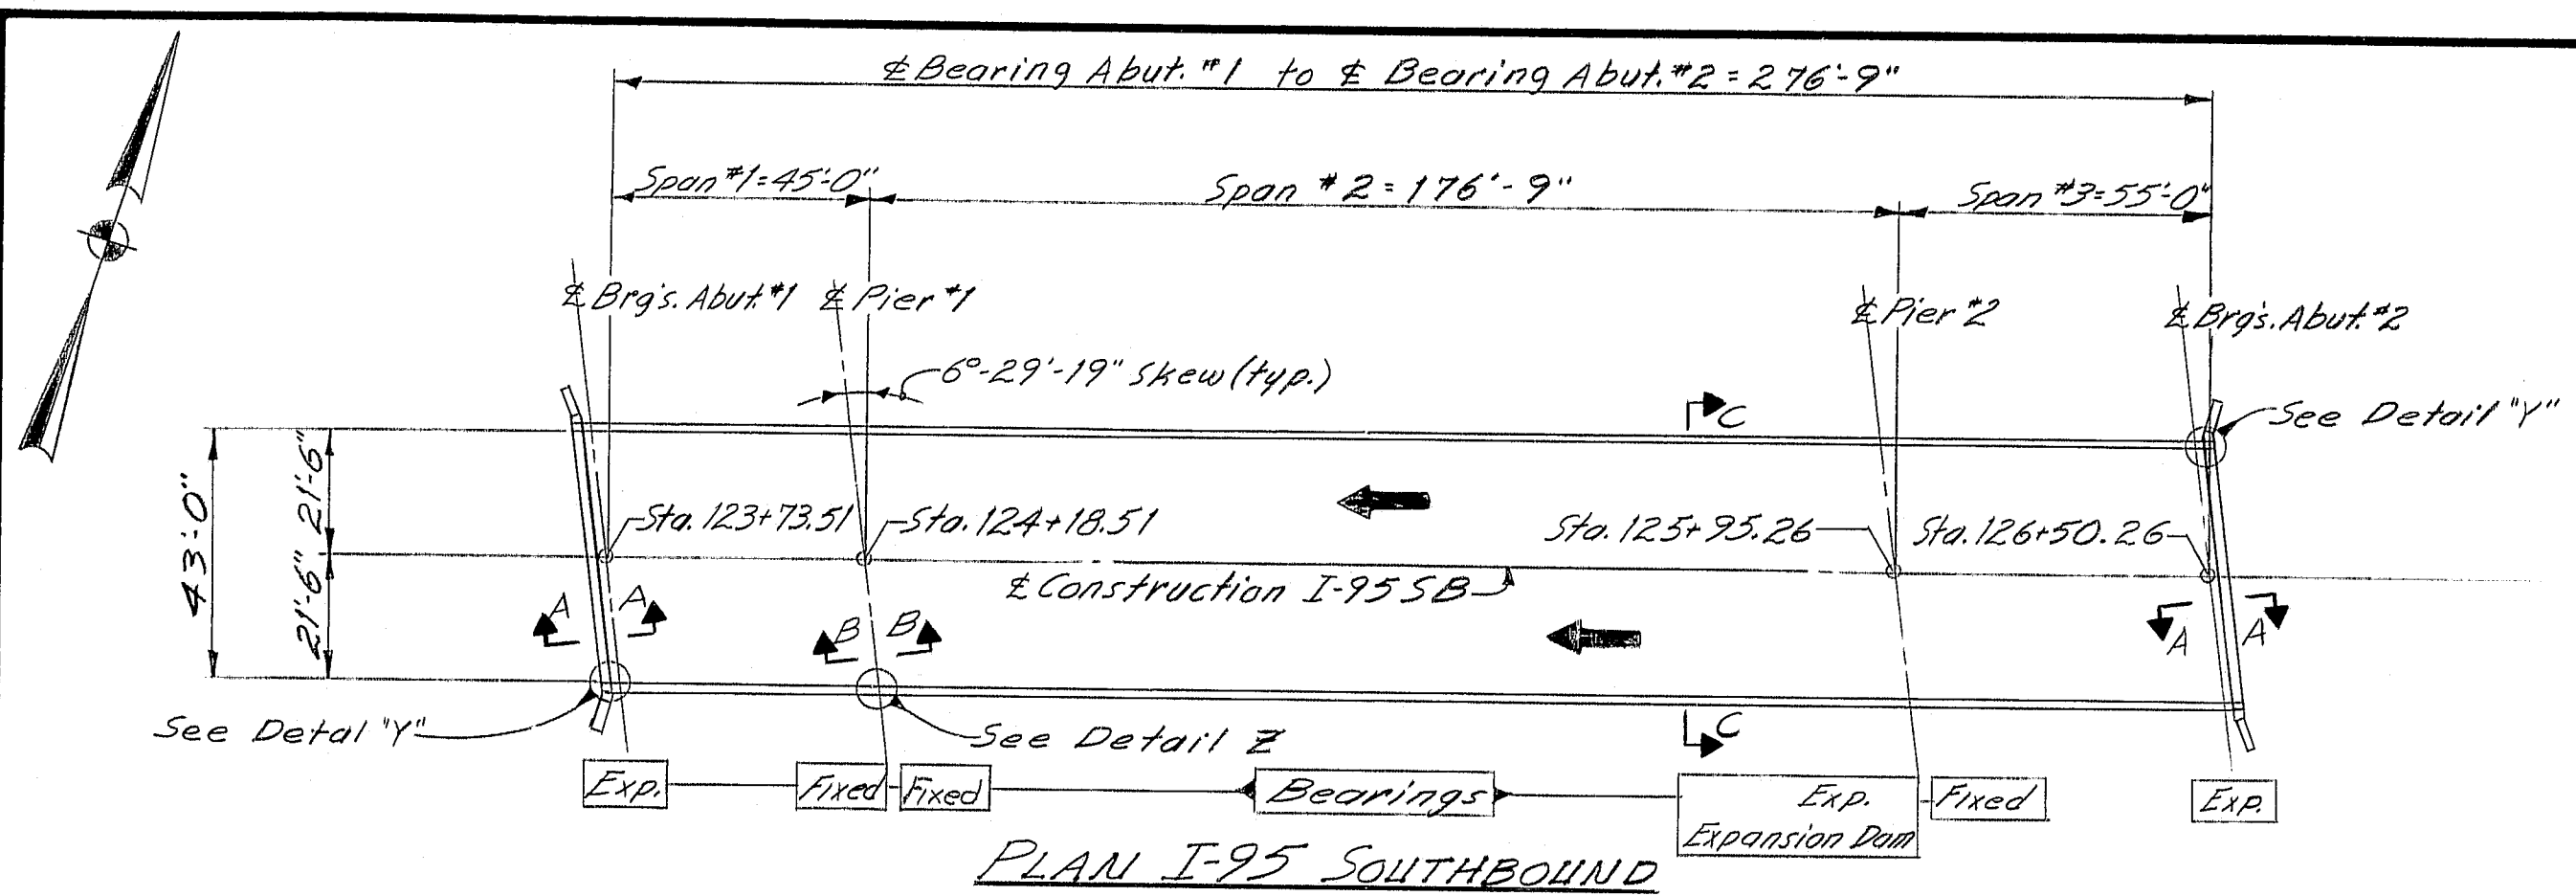 ℄ Bearing Abut. #1 to ℄ Bearing Abut. #2 = 276'-9"
Span #1 = 45'-0"
Span #2 = 176'-9"
Span #3 = 55'-0"
℄ Brg's. Abut. #1
℄ Pier #1
℄ Pier #2
℄ Brg's. Abut. #2
6°-29'-19" skew (typ.)
C
See Detail "Y"
43'-0"
21'-6"
21'-6"
Sta. 123+73.51
Sta. 124+18.51
Sta. 125+95.26
Sta. 126+50.26
℄ Construction I-95 SB
A A
B B
A A
See Detal "Y"
See Detail Z
C
Exp.
Fixed
Fixed
Bearings
Exp.
Expansion Dam
Fixed
Exp.
PLAN I-95 SOUTHBOUND